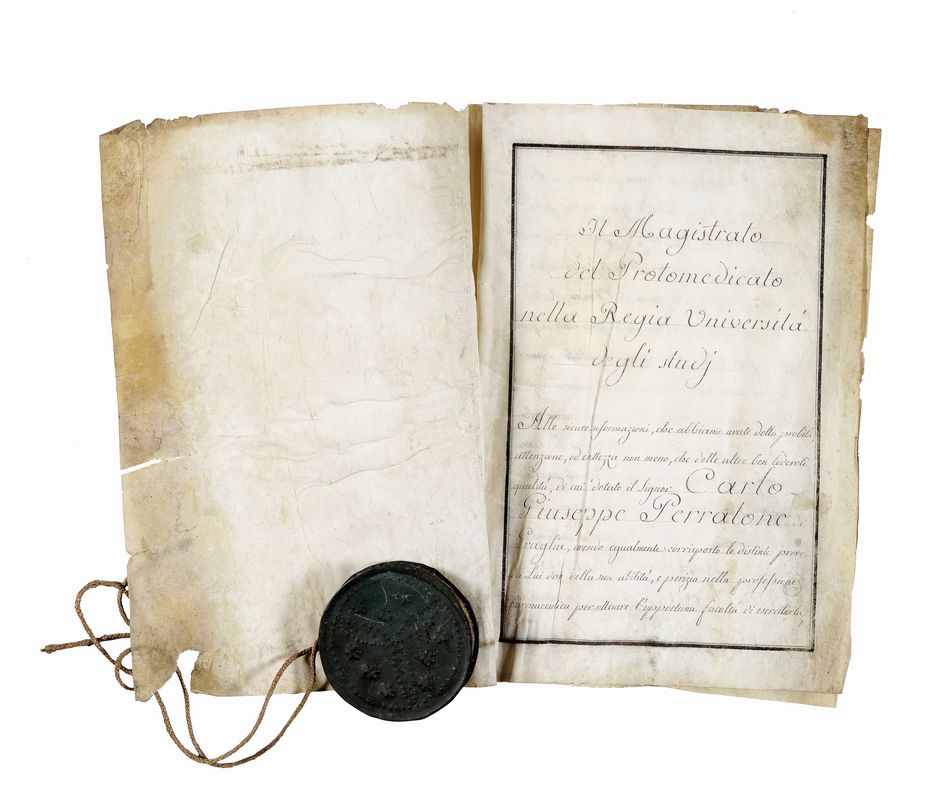 Il Magistrato
del Protomedicato
nella Regia Universitá
degli studj
Alle sicure informazioni, che abbiamo avute della probitá,
attenzione, ed esattezza non meno, che delle altre ben lodevoli
qualitá, di cui é dotato il Signor Carlo
Giuseppe Perratone di
Graglia, avendo egualmente corrisposto le distinte prove
da Lui date della sua abilitá, e perizia nella professione
farmaceutica per ottenere l'opportuna facoltá di esercitarla,